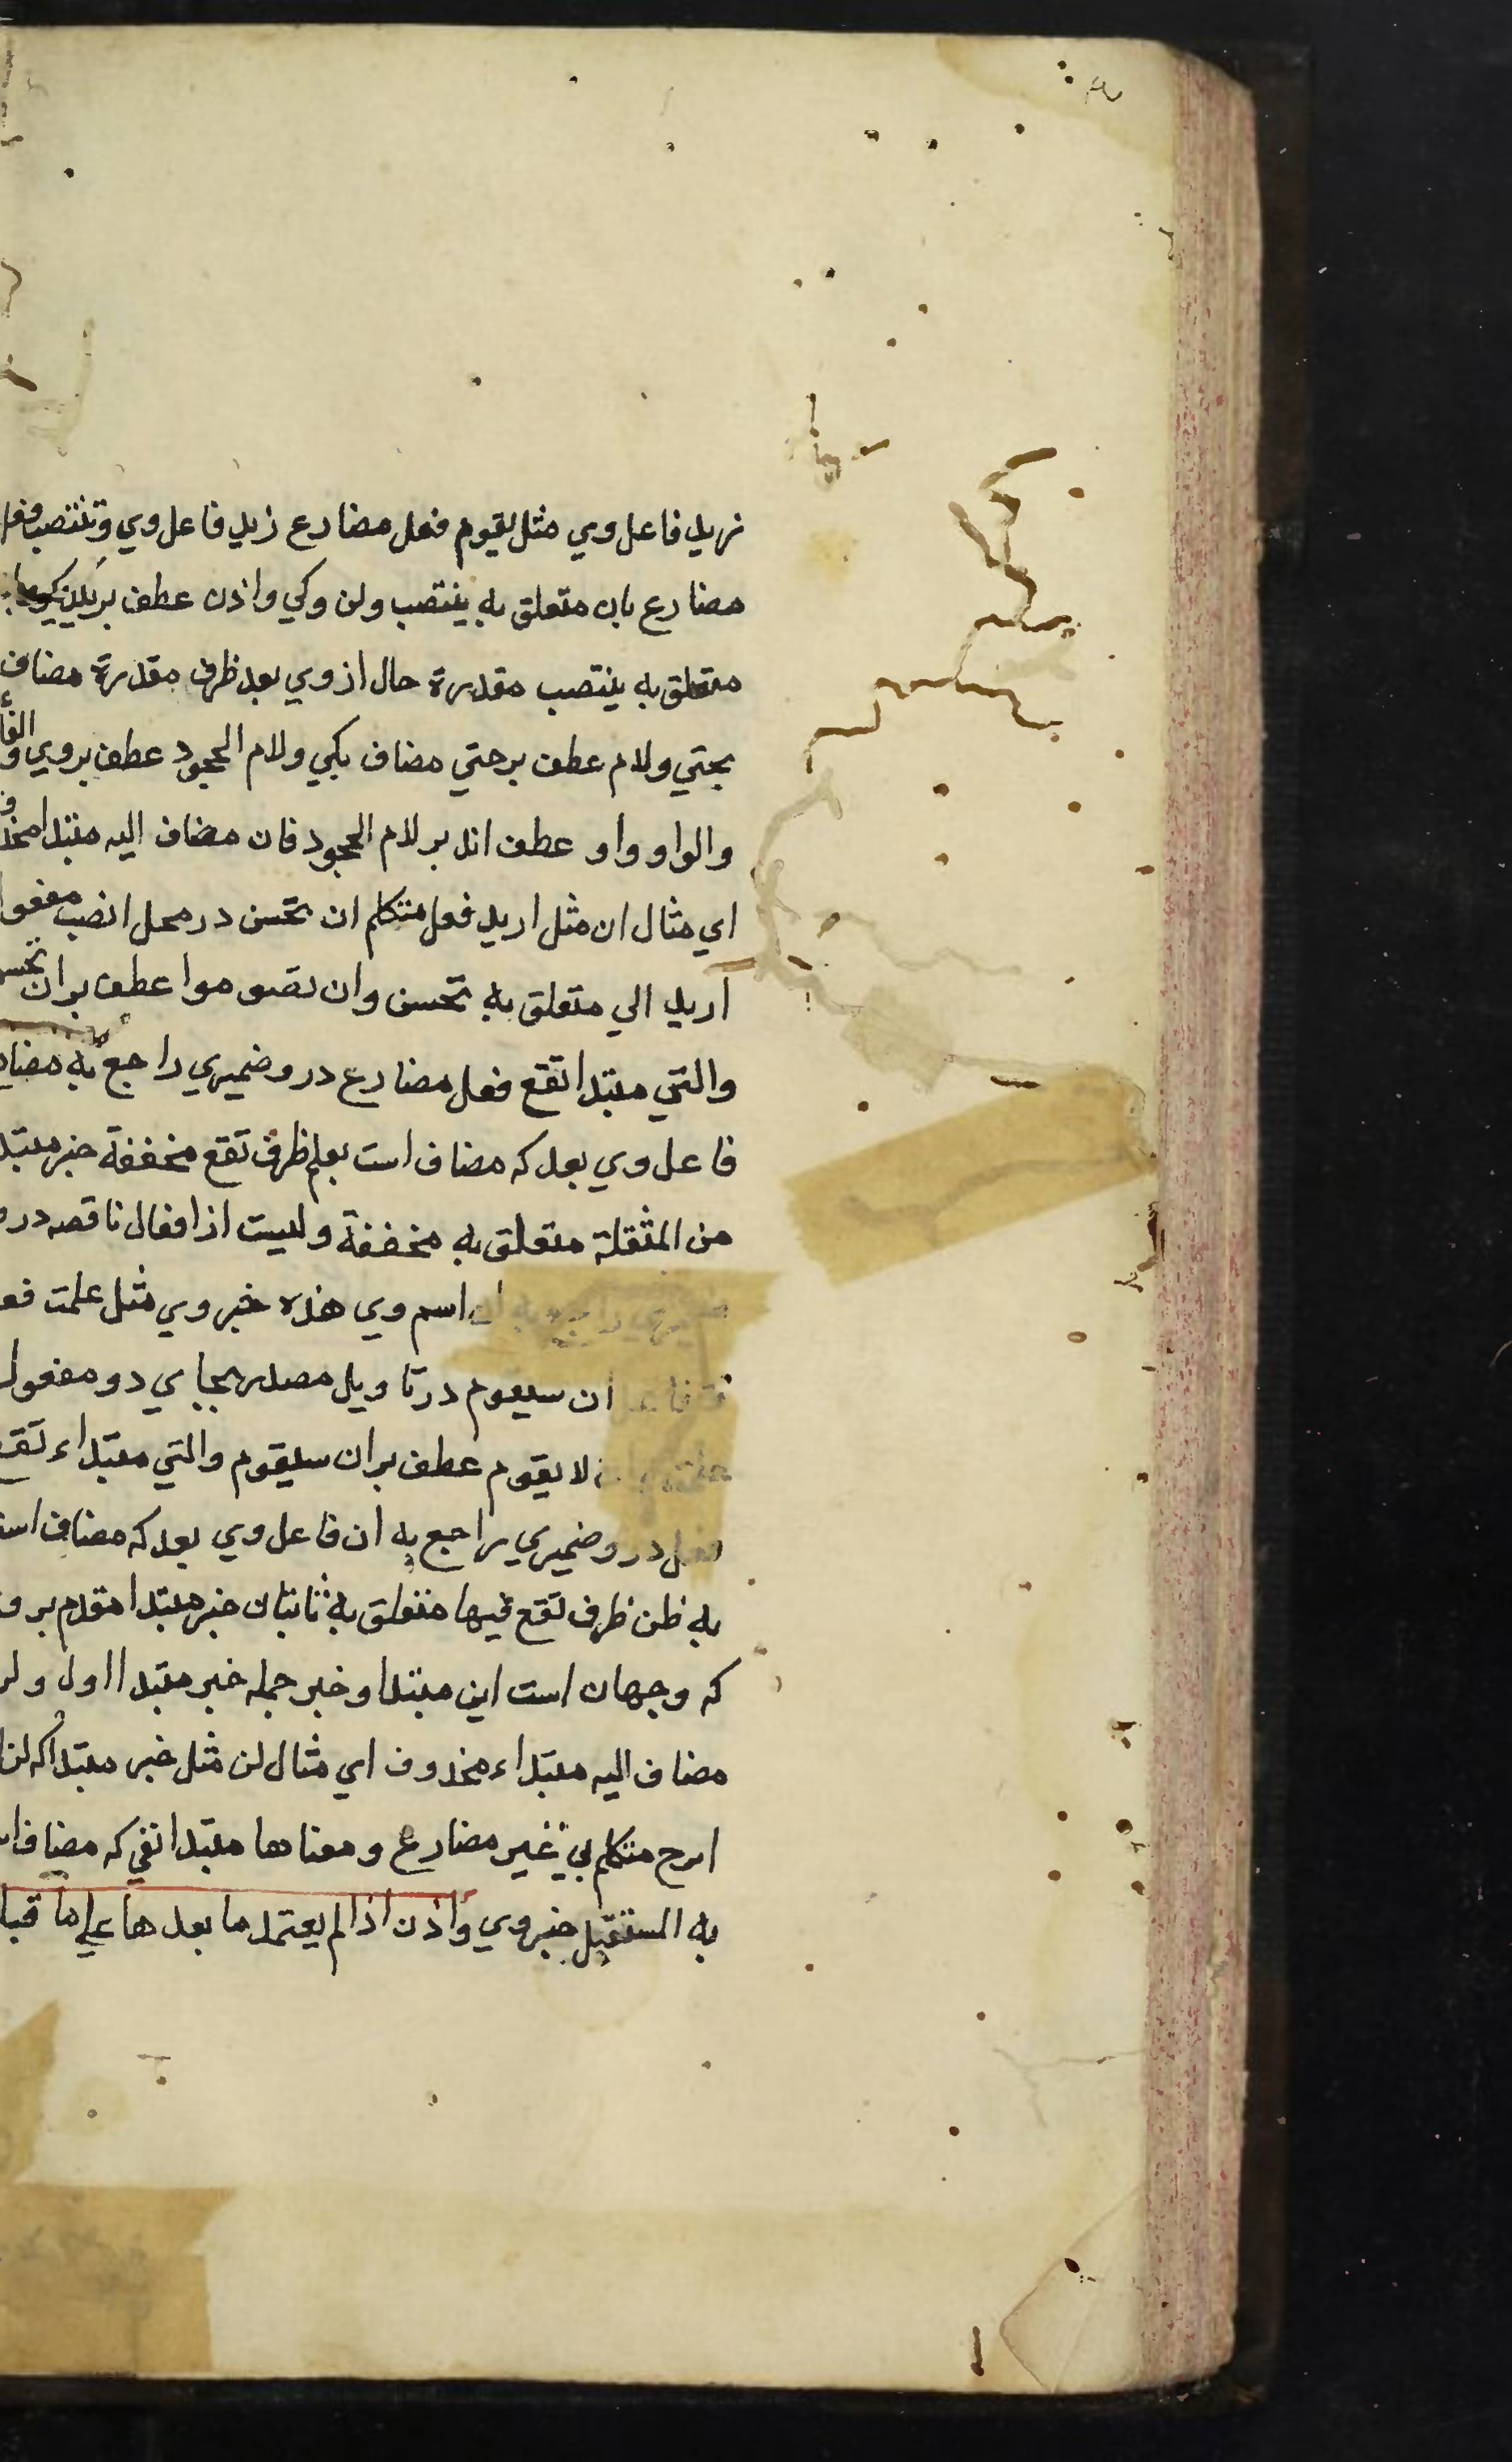 زید فاعل وي مثل یقوم فعل مضارع زید فاعل وي وتنتصب فعل
مضارع بان متعلق به ینتصب ولن وکي واذن عطف بر یکدیگر
متعلق به ینتصب مقدرة حال از وي بعد ظرف مقدرة مضاف
بحتي ولام عطف بر حتي مضاف بکي ولام الجحود عطف بر وي والفاء
والواو واو عطف اند بر لام الجحود فان مضاف الیه مبتدا محذوف
اي مثال ان مثل ارید فعل متکلم ان تحسن در محل انصب مفعول
ارید الي متعلق به تحسن وان تصوموا عطف بر ان تحسن
والتي مبتدا تقع فعل مضارع درو ضمیري راجع به مضاف
فاعل وي بعد که مضاف است بعلم ظرف تقع مخففة خبر مبتدا
من المثقلة متعلق به مخففة ولیست از افعال ناقصه درو
ضمیري راجع به ان اسم وي هذه خبر وي مثل علمت فعل
فاعل ان سیقوم در تاویل مصدر بجاي دو مفعول
لا یقوم عطف بر ان سیقوم والتي مبتداء تقع
فعل درو ضمیري راجع به ان فاعل وي بعد که مضاف است
به ظن ظرف تقع فیها متعلق به ثابتان خبر مبتدا مقدم بر
که وجهان است این مبتدا وخبر جمله خبر مبتدا اول ولن
مضاف الیه مبتداء محذوف اي مثال لن مثل خبر مبتدا که لن
ابرح متکلم بي غیر مضارع ومعناها مبتدا نفي که مضاف
به المستقبل خبر وي واذن اذا لم یعتمد ما بعدها علي ما قبل